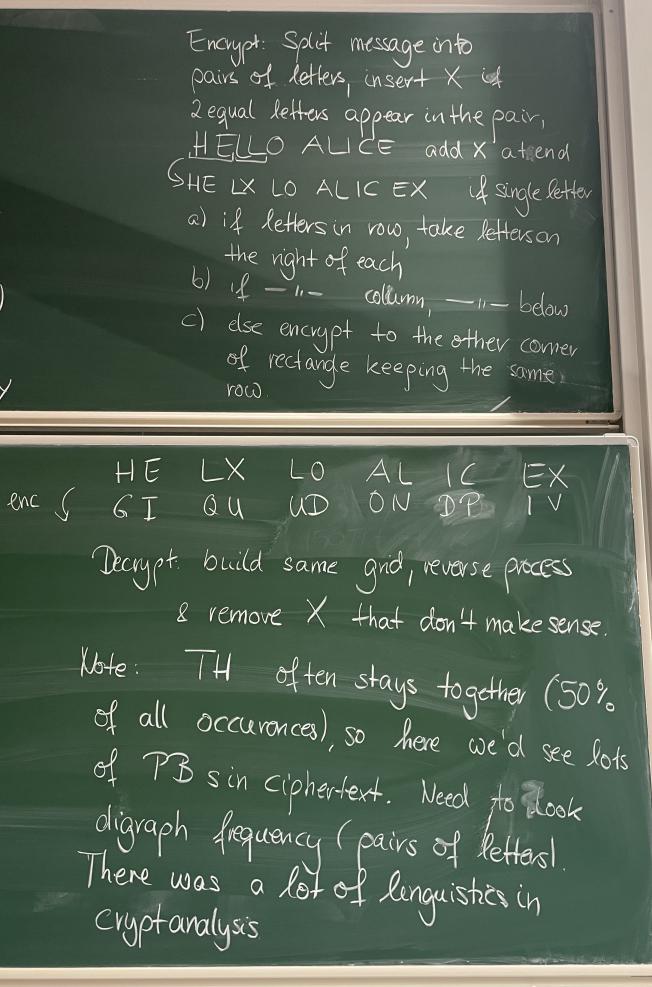 Encrypt: Split message into
pairs of letters, insert X if
2 equal letters appear in the pair,
HELLO ALICE add X at end
HE LX LO AL IC EX if single letter
a) if letters in row, take letters on
the right of each
b) if —"— column, —"— below
c) else encrypt to the other corner
of rectange keeping the same
row.
HE LX LO AL IC EX
enc GI QU UD ON DP IV
Decrypt: build same grid, reverse process
& remove X that don't make sense.
Note: TH often stays together (50%
of all occurences), so here we'd see lots
of PBs in ciphertext. Need to look
digraph frequency (pairs of letters).
There was a lot of linguistics in
cryptanalysis